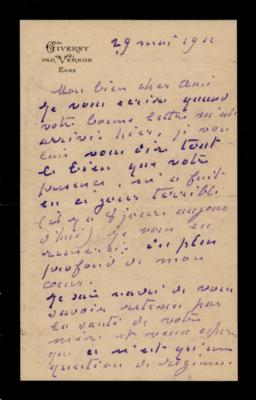 GIVERNY
PAR VERNON
EURE
29 mai 1911
Mon bien cher Ami
Je vous écrivis quand
votre bonne lettre m'est
arrivée hier, je vou
lais vous dire tout
le bien que votre
présence m'a fait
en ce jour terrible
(il y a 8 jours aujour
d'hui) Je vous en
remercie du plus
profond de mon
cœur.
Je suis navré de vous
savoir retenu par
la santé de votre
mère et veux espérer
que ce n'est qu'une
question de régime.